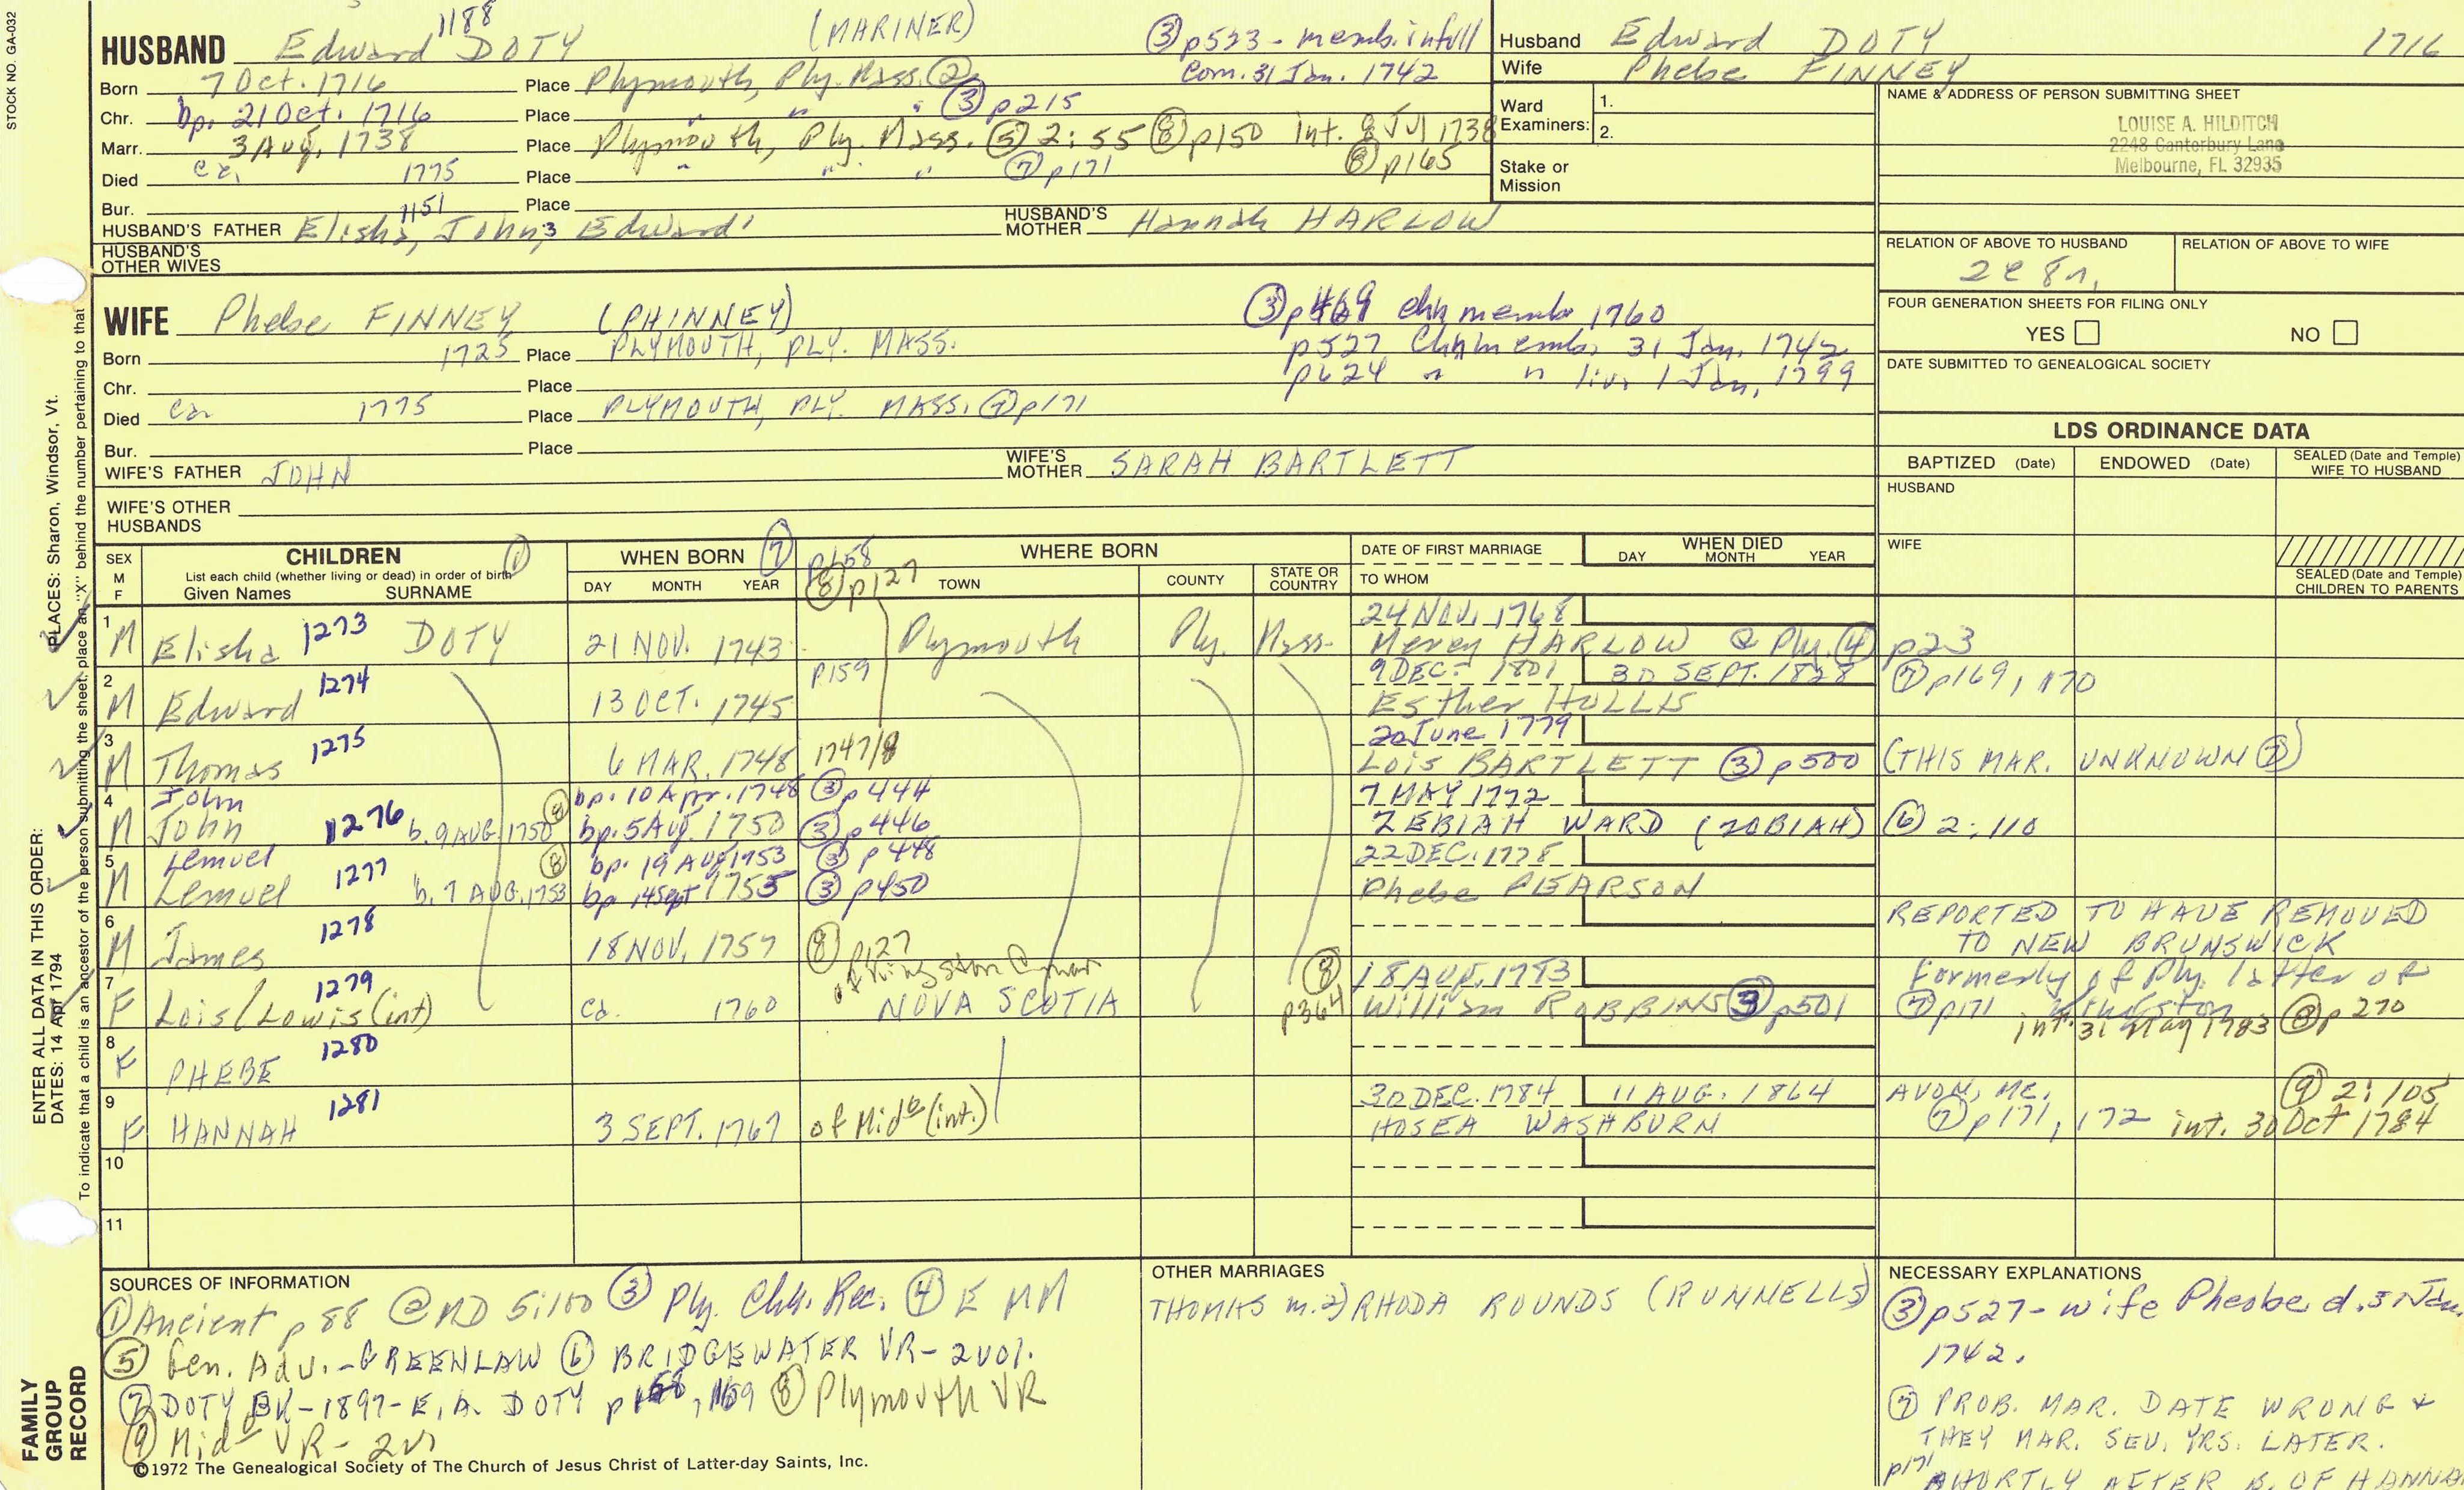 STOCK NO. GA-032
1188
HUSBAND Edward DOTY (MARINER) ③ p523 - memb. in full
Born 7 Oct. 1716 Place Plymouth, Ply. Mass. ② Com. 31 Jan. 1742
Chr. bp. 21 Oct. 1716 Place " " " ③ p215
Marr. 3 Aug. 1738 Place Plymouth, Ply. Mass. ⑤ 2:55 ⑧ p150 Int. 8 Jul 1738
Died ca. 1775 Place " " " ⑦ p171 ⑧ p165
Bur. Place
1151
HUSBAND'S FATHER Elisha, John, Edward HUSBAND'S MOTHER Hannah HARLOW
HUSBAND'S OTHER WIVES
Husband Edward DOTY 1716
Wife Phebe FINNEY
Ward Examiners: 1.
2.
Stake or Mission
NAME & ADDRESS OF PERSON SUBMITTING SHEET
LOUISE A. HILDITCH
2248 Canterbury Lane
Melbourne, FL 32935
RELATION OF ABOVE TO HUSBAND RELATION OF ABOVE TO WIFE
FOUR GENERATION SHEETS FOR FILING ONLY
YES NO
DATE SUBMITTED TO GENEALOGICAL SOCIETY
WIFE Phebe FINNEY (PHINNEY) ③ p469 chh memb 1760
Born 1725 Place PLYMOUTH, PLY. MASS. p527 Chh memb. 31 Jan. 1742
Chr. Place p624 " " liv. 1 Jan. 1799
Died ca 1775 Place PLYMOUTH, PLY. MASS. ⑦ p171
Bur. Place
WIFE'S FATHER JOHN WIFE'S MOTHER SARAH BARTLETT
WIFE'S OTHER HUSBANDS
LDS ORDINANCE DATA
BAPTIZED (Date) ENDOWED (Date) SEALED (Date and Temple) WIFE TO HUSBAND
HUSBAND
WIFE
SEALED (Date and Temple) CHILDREN TO PARENTS
SEX M F CHILDREN ① WHEN BORN ⑦ p158 WHERE BORN DATE OF FIRST MARRIAGE WHEN DIED
List each child (whether living or dead) in order of birth
Given Names SURNAME DAY MONTH YEAR ⑧ p127 TOWN COUNTY STATE OR COUNTRY TO WHOM DAY MONTH YEAR
24 NOV. 1768
1 M Elisha 1273 DOTY 21 NOV. 1743 Plymouth Ply. Mass. Mercy HARLOW @ Ply. ④ p23
p159 9 DEC. 1801 30 SEPT. 1828 ⑦ p169, 170
2 M Edward 1274 13 OCT. 1745 Esther HOLLIS
20 June 1779
3 M Thomas 1275 6 MAR. 1748 1747/8 Lois BARTLETT ③ p500 (THIS MAR. UNKNOWN ⑦)
John bp. 10 Apr. 1748 ③ p444 7 MAY 1772
4 M John 1276 b. 9 AUG. 1750 ⑧ bp. 5 Aug. 1750 ③ p446 ZEBIAH WARD (ZOBIAH) ⑥ 2:110
Lemuel ⑧ bp. 19 AUG 1753 ③ p448 22 DEC. 1778
5 M Lemuel 1277 b. 7 AUG. 1753 bp 14 Sept 1755 ③ p450 Phebe PEARSON
6 M James 1278 18 NOV. 1757 ⑧ p127 REPORTED TO HAVE REMOVED
TO NEW BRUNSWICK
of Kingston @ mar ⑧ p364 18 AUG. 1783 Formerly of Ply. latter of
7 F Lois/Lowis (int) 1279 ca. 1760 NOVA SCOTIA William ROBBINS ③ p501 ⑦ p171
int. 31 May 1783 ⑧ p 270
8 F PHEBE 1280
30 DEC. 1784 11 AUG. 1864 AVON, ME. ⑨ 2:105
9 F HANNAH 1281 3 SEPT. 1767 of Mid. (int.) HOSEA WASHBURN ⑦ p171, 172 int. 30 Oct 1784
10
11
SOURCES OF INFORMATION
① Ancient p 88 @ MD 5:100 ③ Ply. Chh. Rec. ④ E MM
⑤ Gen. Adv. - GREENLAW ⑥ BRIDGEWATER VR - 2 vol.
⑦ DOTY BK - 1897 - E. A. DOTY p158, 159 ⑧ Plymouth VR
⑨ Mid VR - 2 v
©1972 The Genealogical Society of The Church of Jesus Christ of Latter-day Saints, Inc.
OTHER MARRIAGES
THOMAS m. 2) RHODA ROUNDS (RUNNELLS)
NECESSARY EXPLANATIONS
③ p527 - wife Pheobe d. 31 Jan.
1742.
⑦ PROB. MAR. DATE WRONG &
THEY MAR. SEV. YRS. LATER.
p171 SHORTLY AFTER B. OF HANNA
ENTER ALL DATA IN THIS ORDER:
DATES: 14 Apr 1794 PLACES: Sharon, Windsor, Vt.
To indicate that a child is an ancestor of the person submitting the sheet, place an "X" behind the number pertaining to that
FAMILY GROUP RECORD